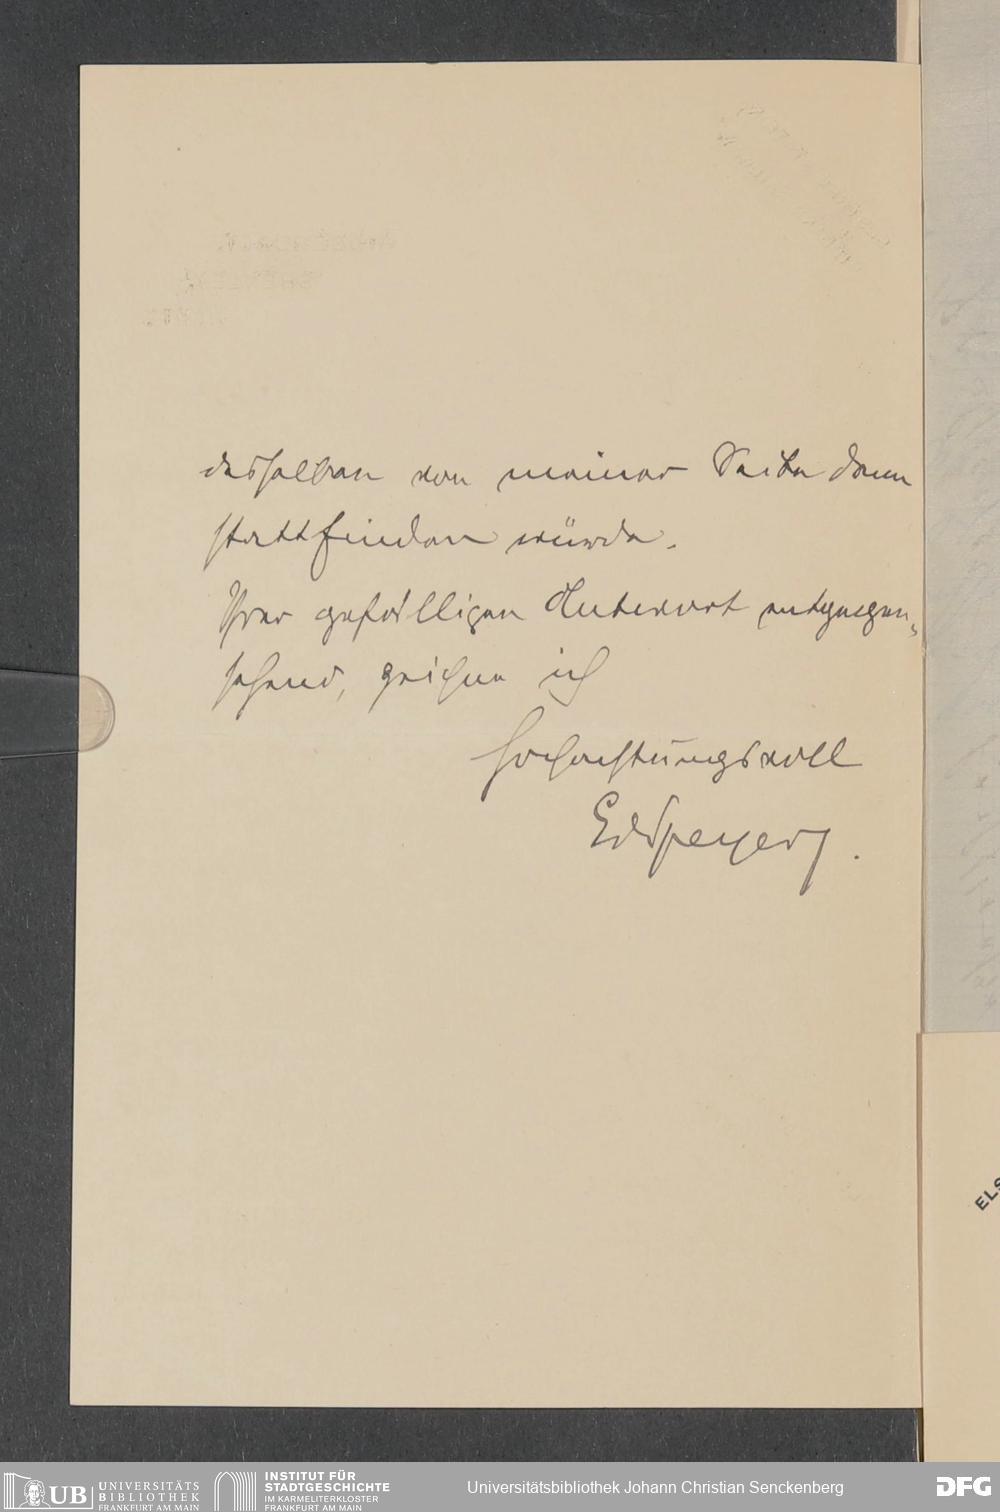 desselben von meiner Seite dann
stattfinden würde.
Ihrer gefälligen Antwort entgegen„
sehend, zeichne ich
hochachtungsvoll
EdSpeyer.
ELS
UB UNIVERSITÄTS
BIBLIOTHEK
FRANKFURT AM MAIN
INSTITUT FÜR
STADTGESCHICHTE
IM KARMELITERKLOSTER
FRANKFURT AM MAIN
Universitätsbibliothek Johann Christian Senckenberg
DFG